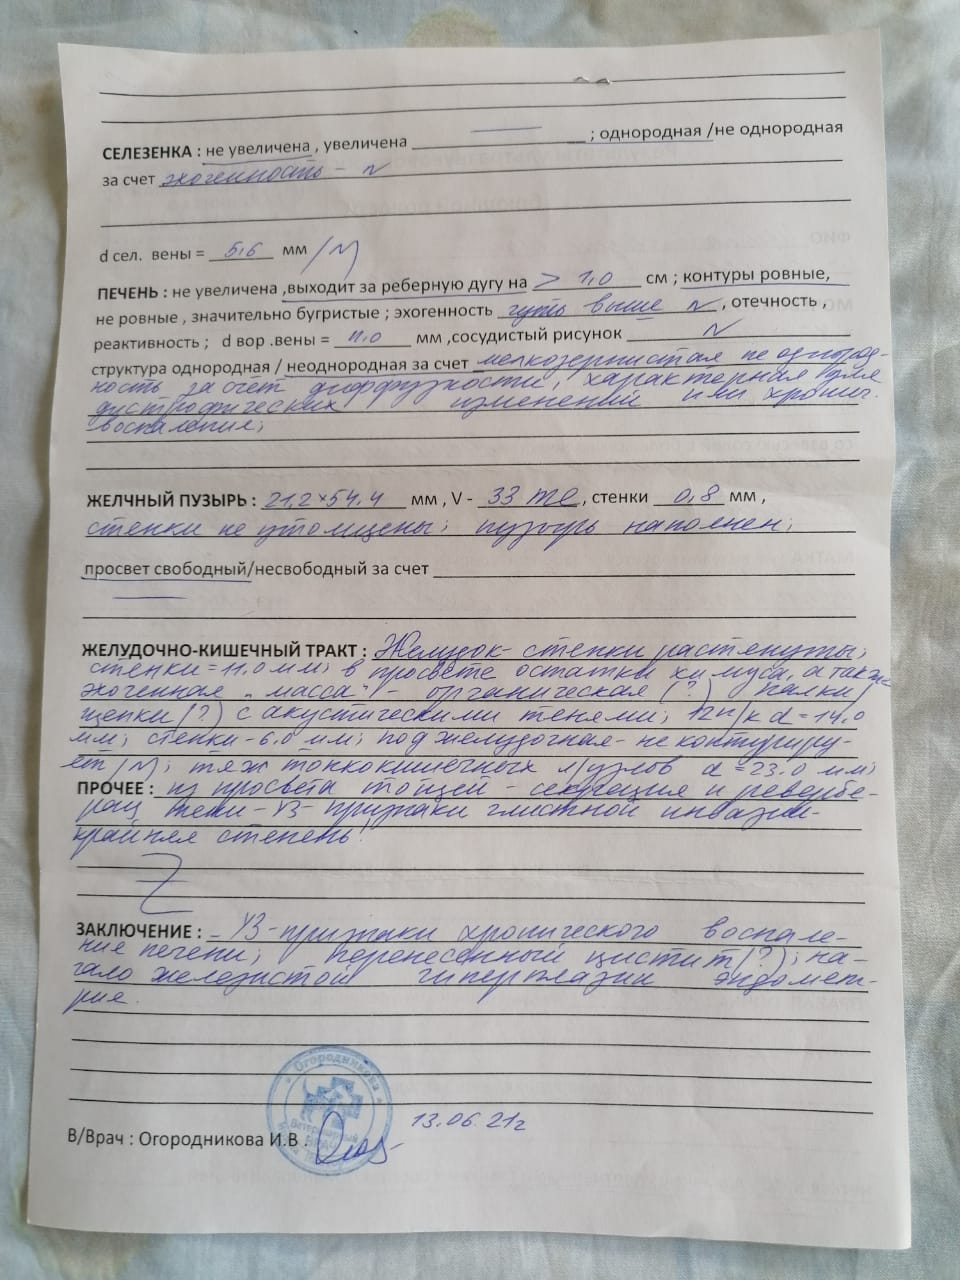 СЕЛЕЗЕНКА : не увеличена , увеличена ; однородная /не однородная
за счет эхогенность - N
d сел. вены = 5,6 мм /N
ПЕЧЕНЬ : не увеличена ,выходит за реберную дугу на > 1,0 см ; контуры ровные,
не ровные , значительно бугристые ; эхогенность чуть выше N , отечность ,
реактивность ; d вор .вены = 11.0 мм ,сосудистый рисунок N
структура однородная / неоднородная за счет мелкозернистая не однород-
ность за счёт диффузности, характерная для
дистрофических изменений или хронич.
воспаление;
ЖЕЛЧНЫЙ ПУЗЫРЬ : 21,2×54,4 мм , V - 33 , стенки 0,8 мм ,
стенки не утолщены; пузырь наполнен;
просвет свободный/несвободный за счет
ЖЕЛУДОЧНО-КИШЕЧНЫЙ ТРАКТ : Желудок - стенки растянуты;
стенки = 11.0 мм; в просвете остатки химуса, а также
эхогенная "масса" - органическая (?) палки/
щепки (?) с акустическими тенями; 12п/к d = 14.0
мм; стенки - 6.0 мм; поджелудочная - не контуриру-
ет /N/; тяж тонкокишечных л/узлов d = 23.0 мм;
ПРОЧЕЕ : из просвета тощей - секреция и ревербе-
рац тени - УЗ - признаки глистной инвазии -
крайняя степень.
Z
ЗАКЛЮЧЕНИЕ : - УЗ-признаки хронического воспале-
ние печени; перенесенный цистит (?); на-
чало железистой гиперплазии эндомет-
рие.
Огородникова
В/Врач : Огородникова И.В . 13.06.21г